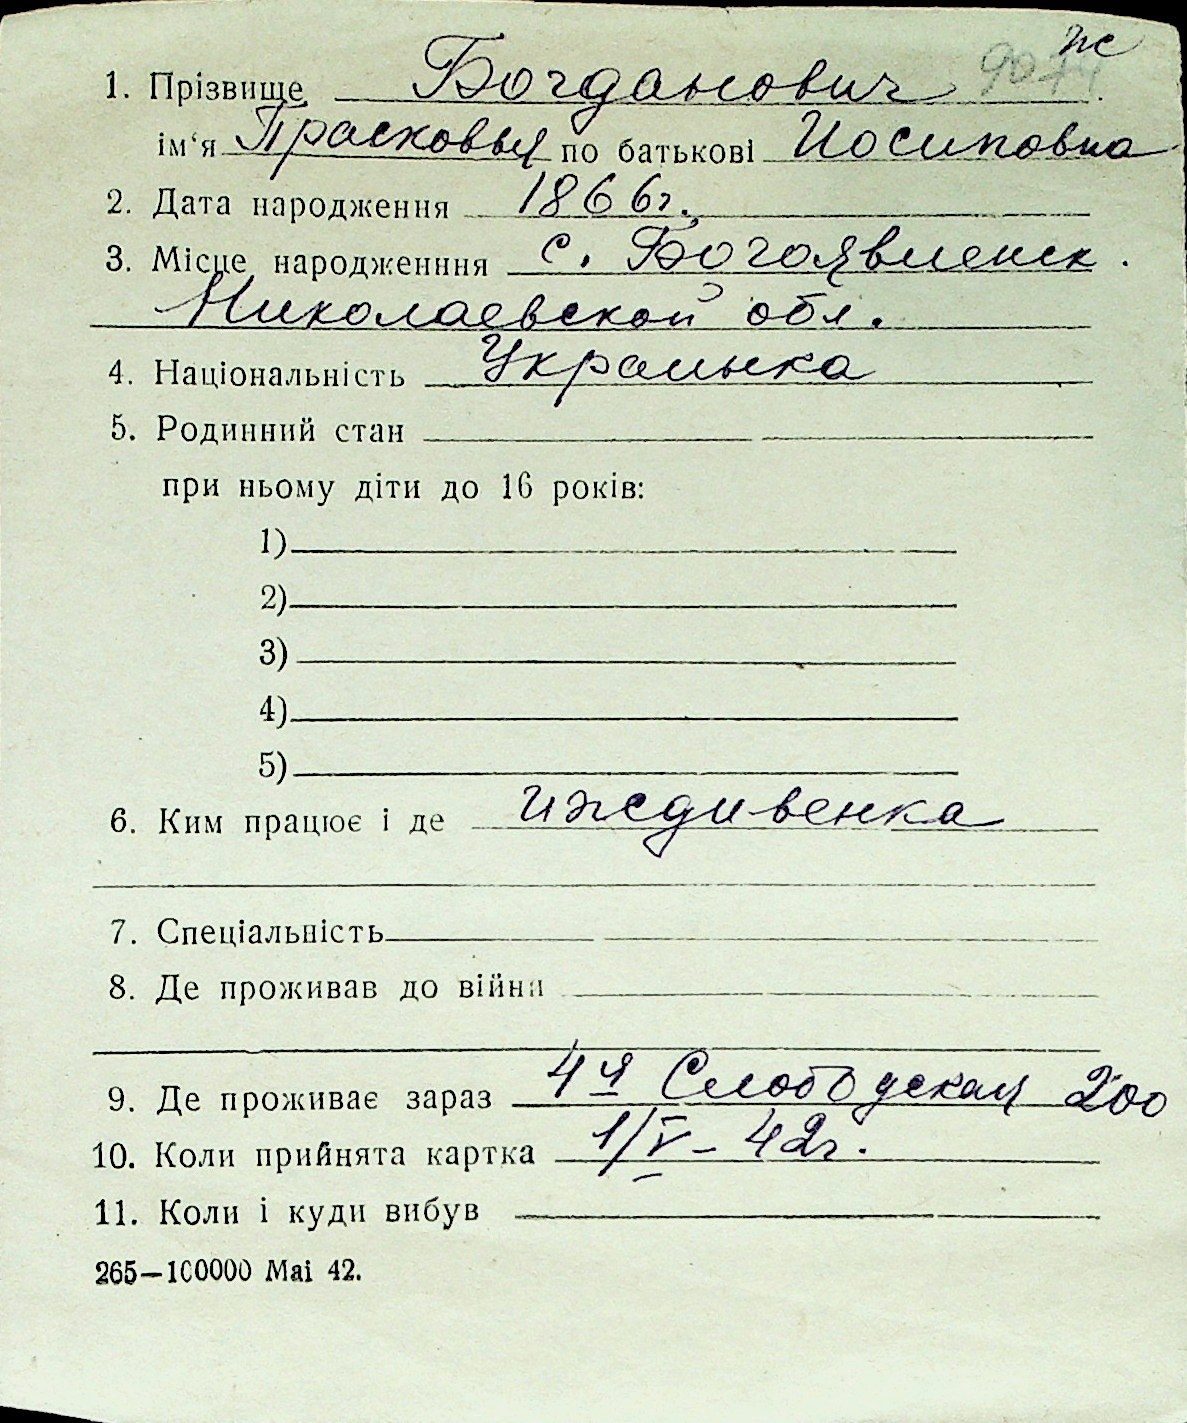 ж
1. Прізвище Богданович
ім'я Прасковья по батькові Иосиповна
2. Дата народження 1866г.
3. Місце народженння с. Богоявленск.
Николаевской обл.
4. Національність Украинка
5. Родинний стан
при ньому діти до 16 років:
1)
2)
3)
4)
5)
6. Ким працює і де иждивенка
7. Спеціальність
8. Де проживав до війни
9. Де проживає зараз 4я Слободская 200
10. Коли прийнята картка 1/V-42г.
11. Коли і куди вибув
265—100000 Mai 42.